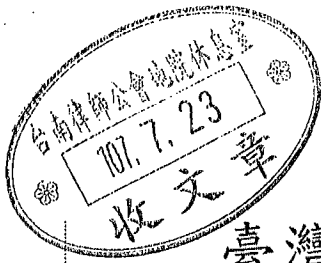 台南律師公會地院休息室
107.7.23
收文章
臺灣